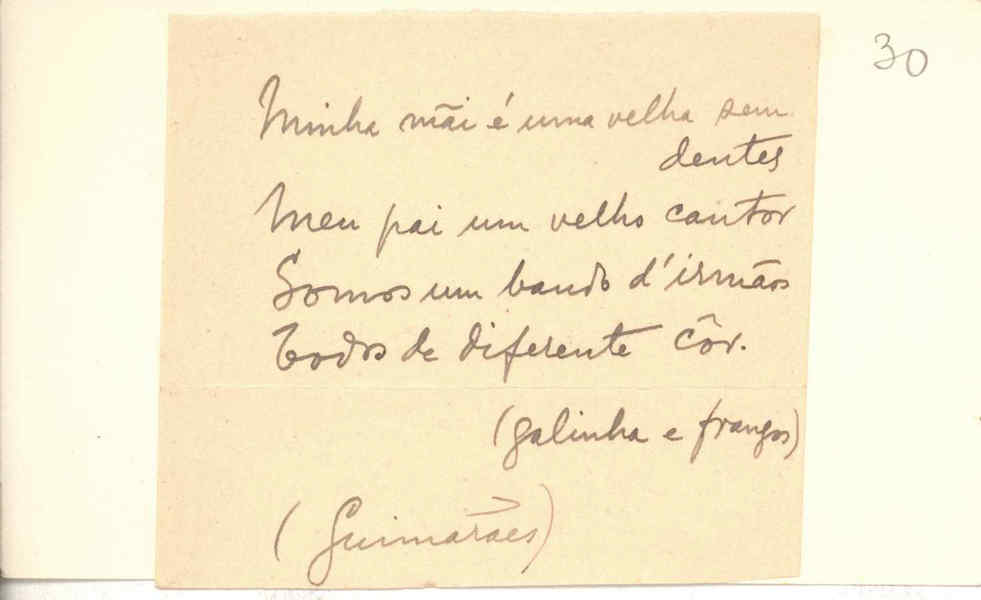 30
Minha mãi é uma velha sem
dentes
Meu pai um velho cantor
Somos um bando d'irmãos
Todos de diferente côr.
(galinha e frangos)
(Guimarães)